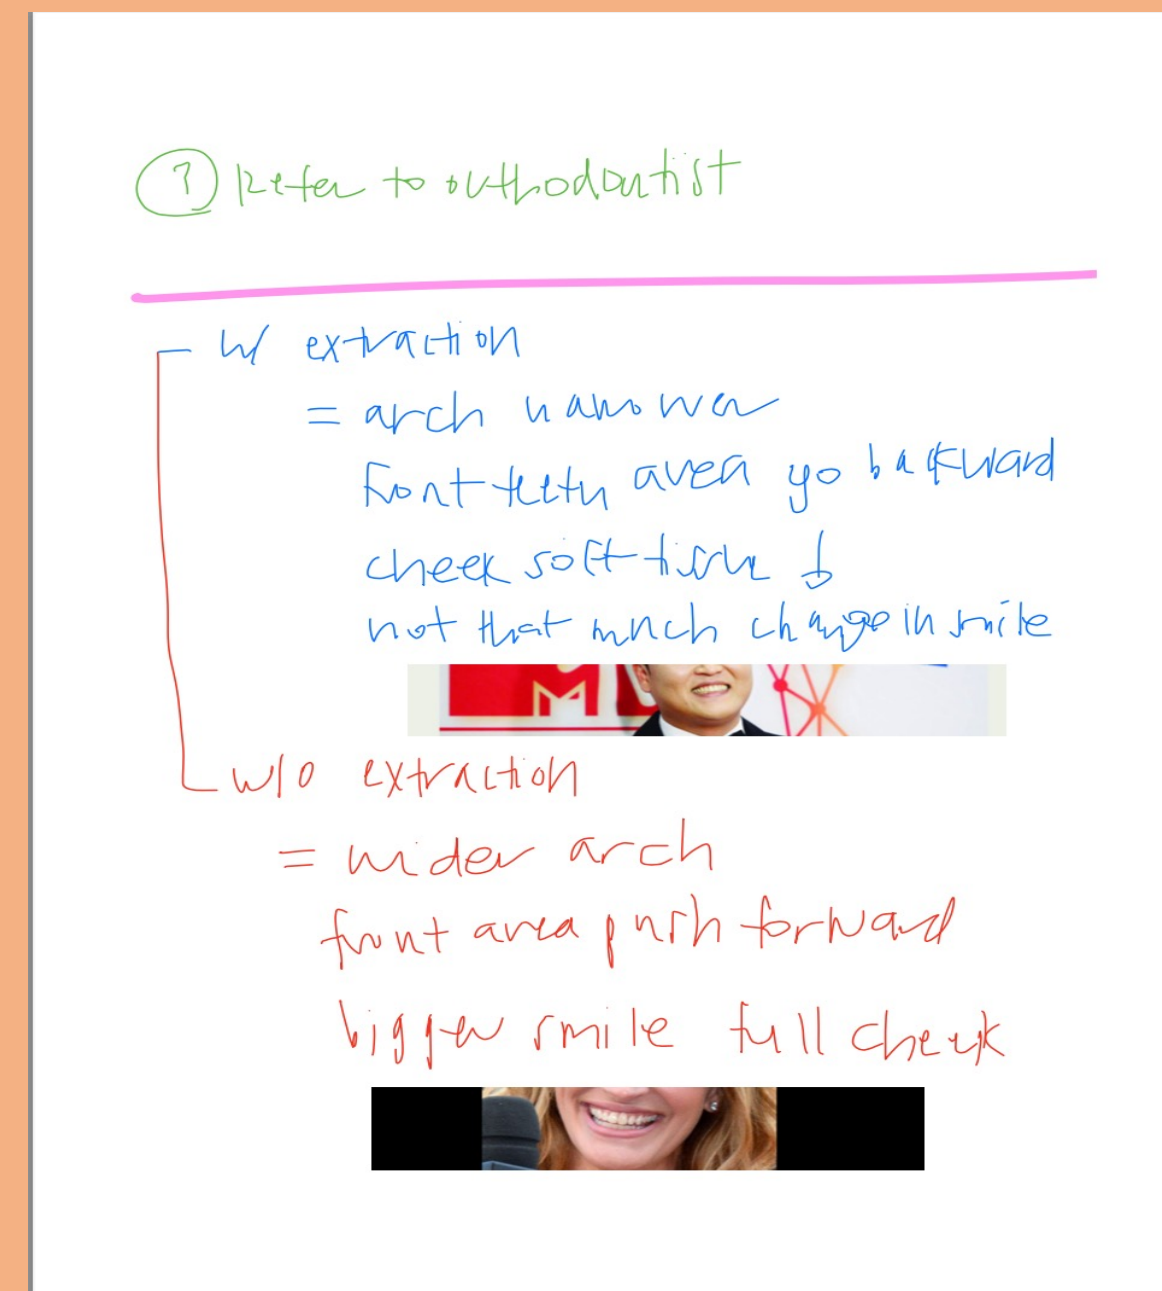 ? Refer to orthodontist
w/ extraction
= arch narrower
front teeth area go backward
cheek soft tissue ↓
not that much change in smile
M
w/o extraction
= wider arch
front area push forward
bigger smile full cheek